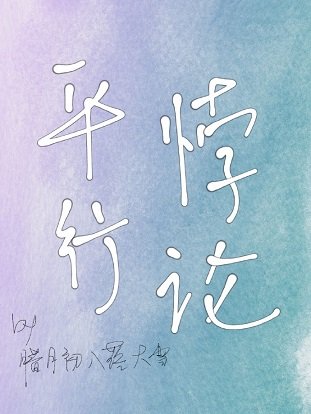 平行
悖论
by
腊月初八落大雪